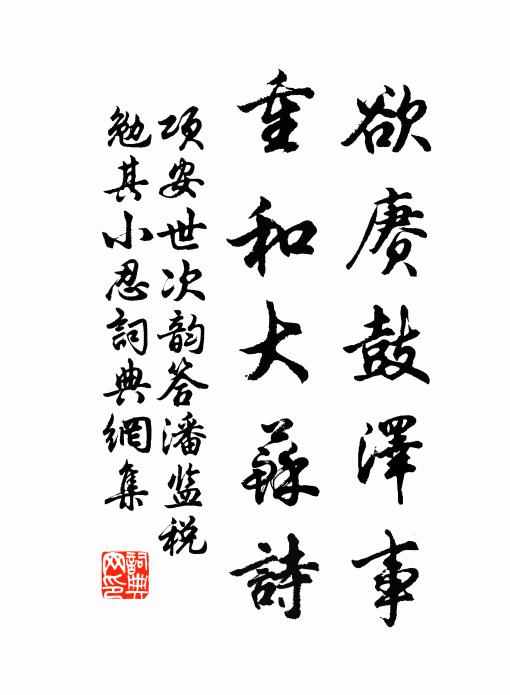 欲赓鼓澤事
重和大蘇詩
项安世次韵答潘监税
勉其小忍詞典網集
詞典网印